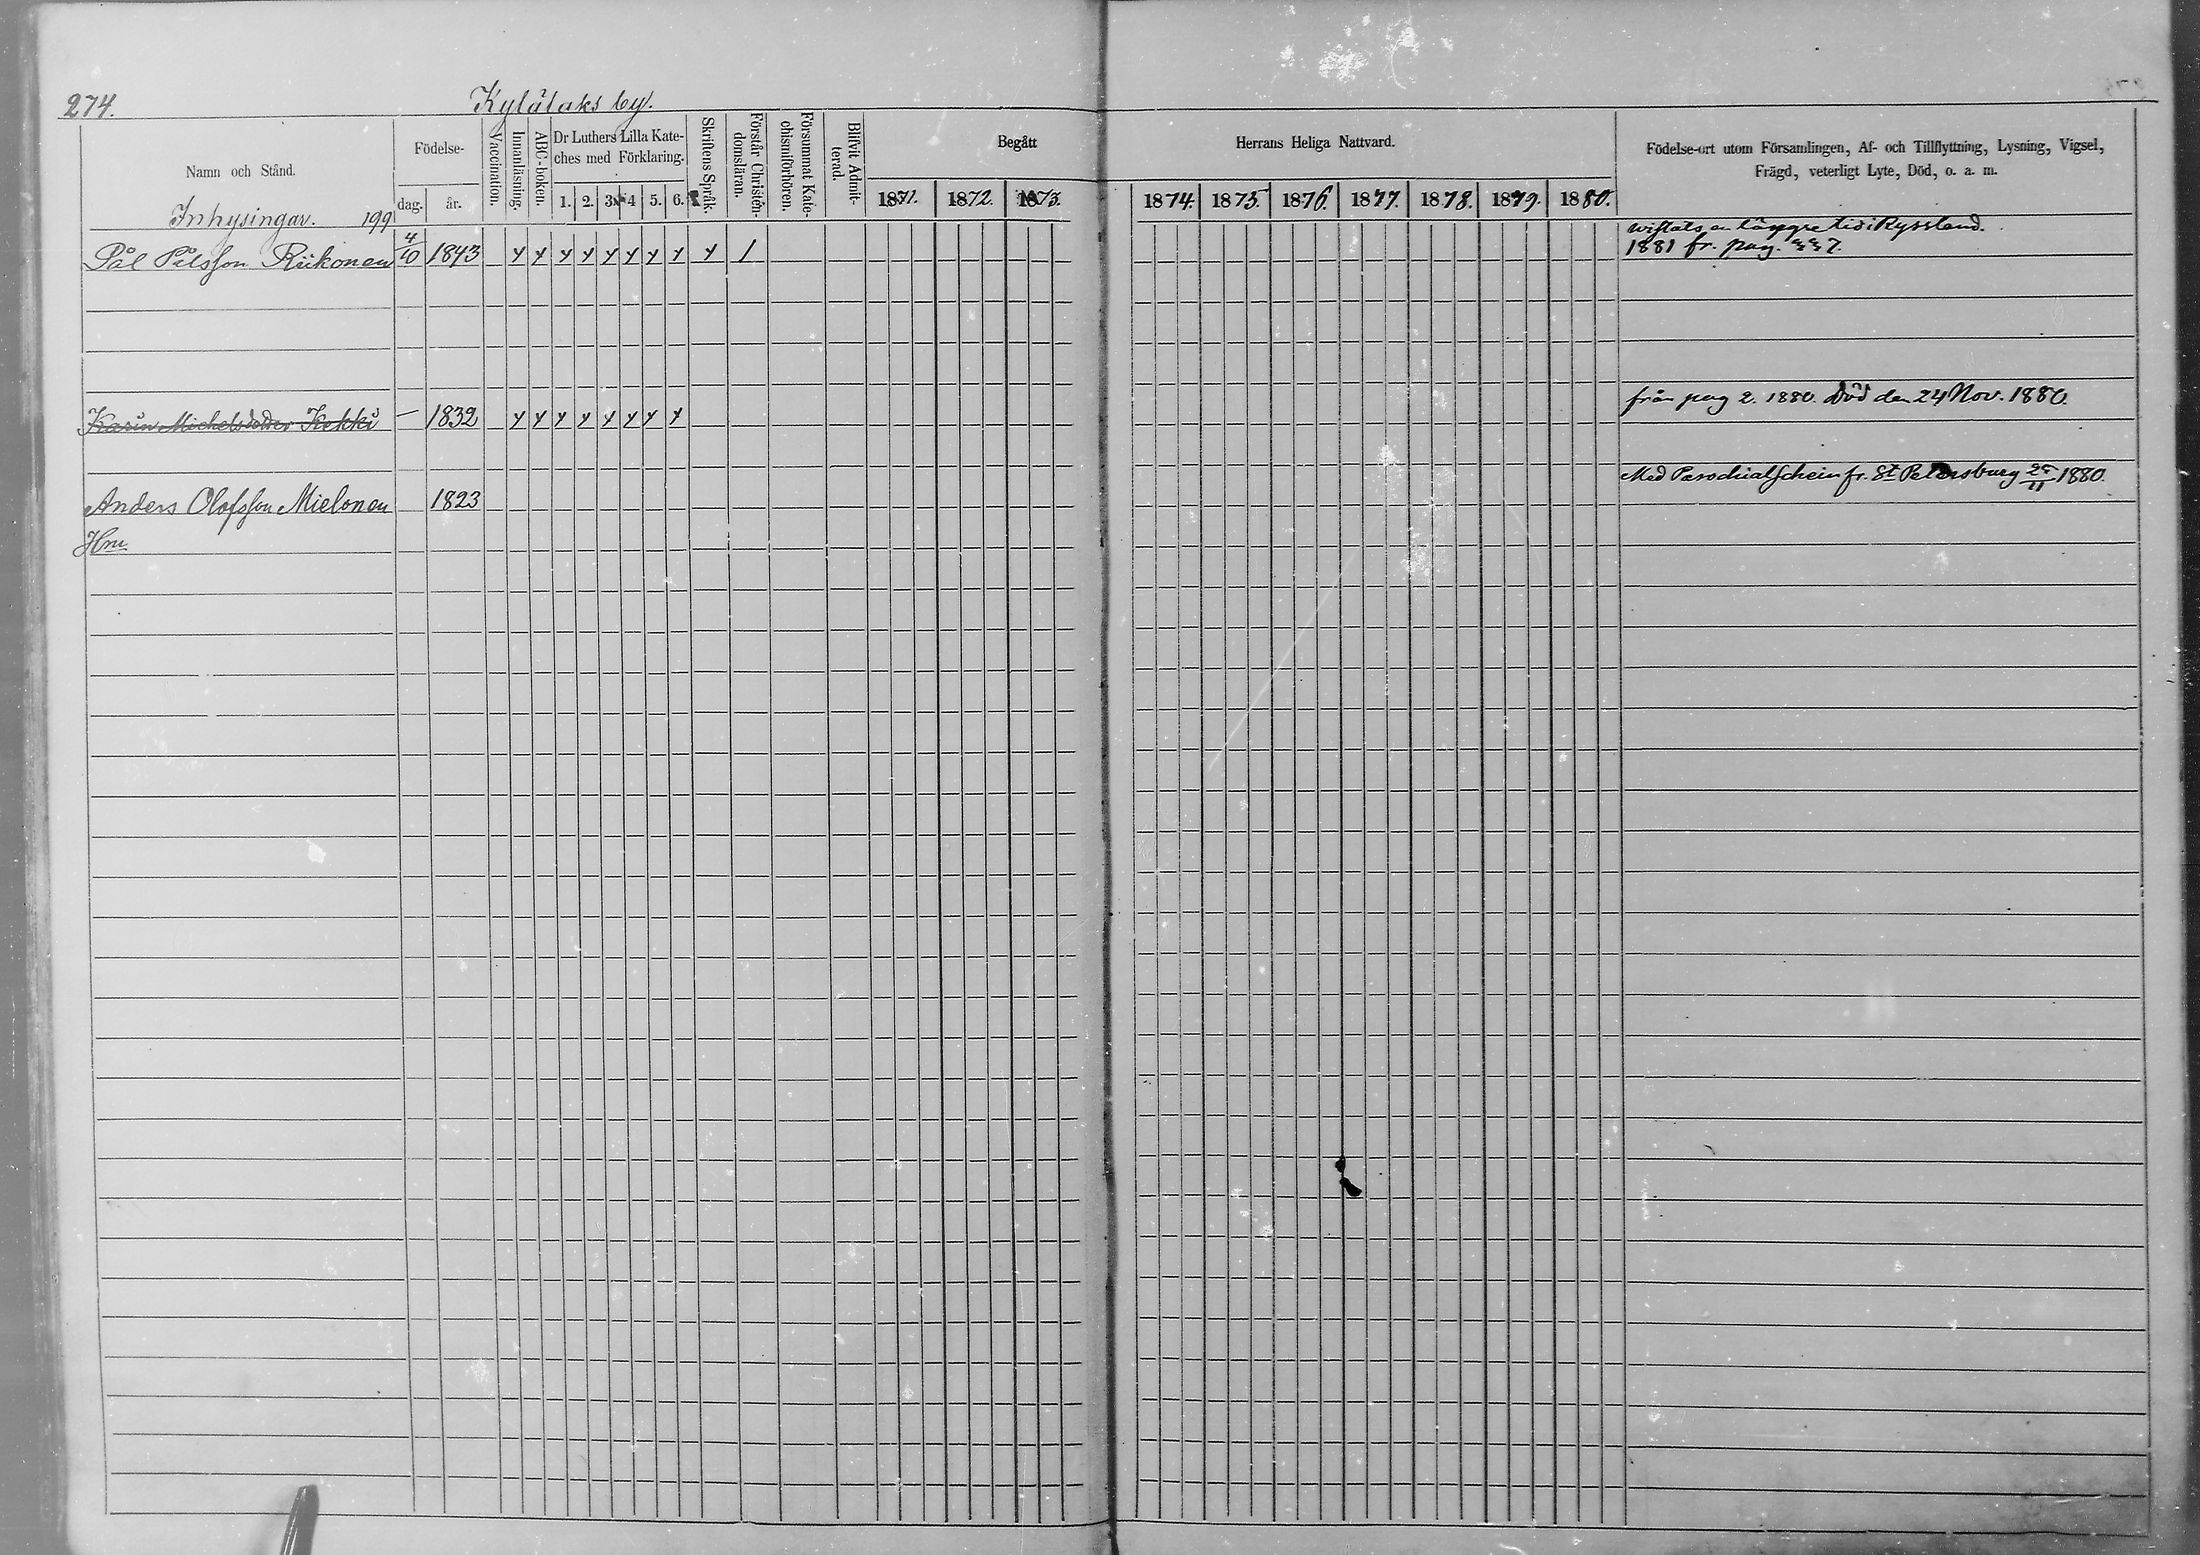 274.
Kylälaks by.
Namn och Stånd.
Födelse-
dag.
år.
Vaccination.
Innanläsning.
ABC-boken.
Dr Luthers Lilla Kate-
ches med Förklaring.
1. 2. 3. 4 5. 6.
Skriftens Språk.
Förstår Christen-
domsläran.
Försummat Kate-
chismiförhören.
Blifvit Admit-
terad.
Begått
1871. 1872. 1873.
Herrans Heliga Nattvard.
1874. 1875. 1876. 1877. 1878. 1879. 1880.
Födelse-ort utom Församlingen, Af- och Tillflyttning, Lysning, Vigsel,
Frägd, veterligt Lyte, Död, o. a. m.
Inhysingar. 199
wistats en längre tid i Ryssland.
Pål Pålsson Riikonen 4/10 1843 1881 fr. pag.
från pag 2. 1880. Död den 24 Nov. 1880.
Karin Michelsdotter Kekki — 1832
Med Parochialschein fr. St Petersburg 1880.
Anders Olofsson Mielonen 1823